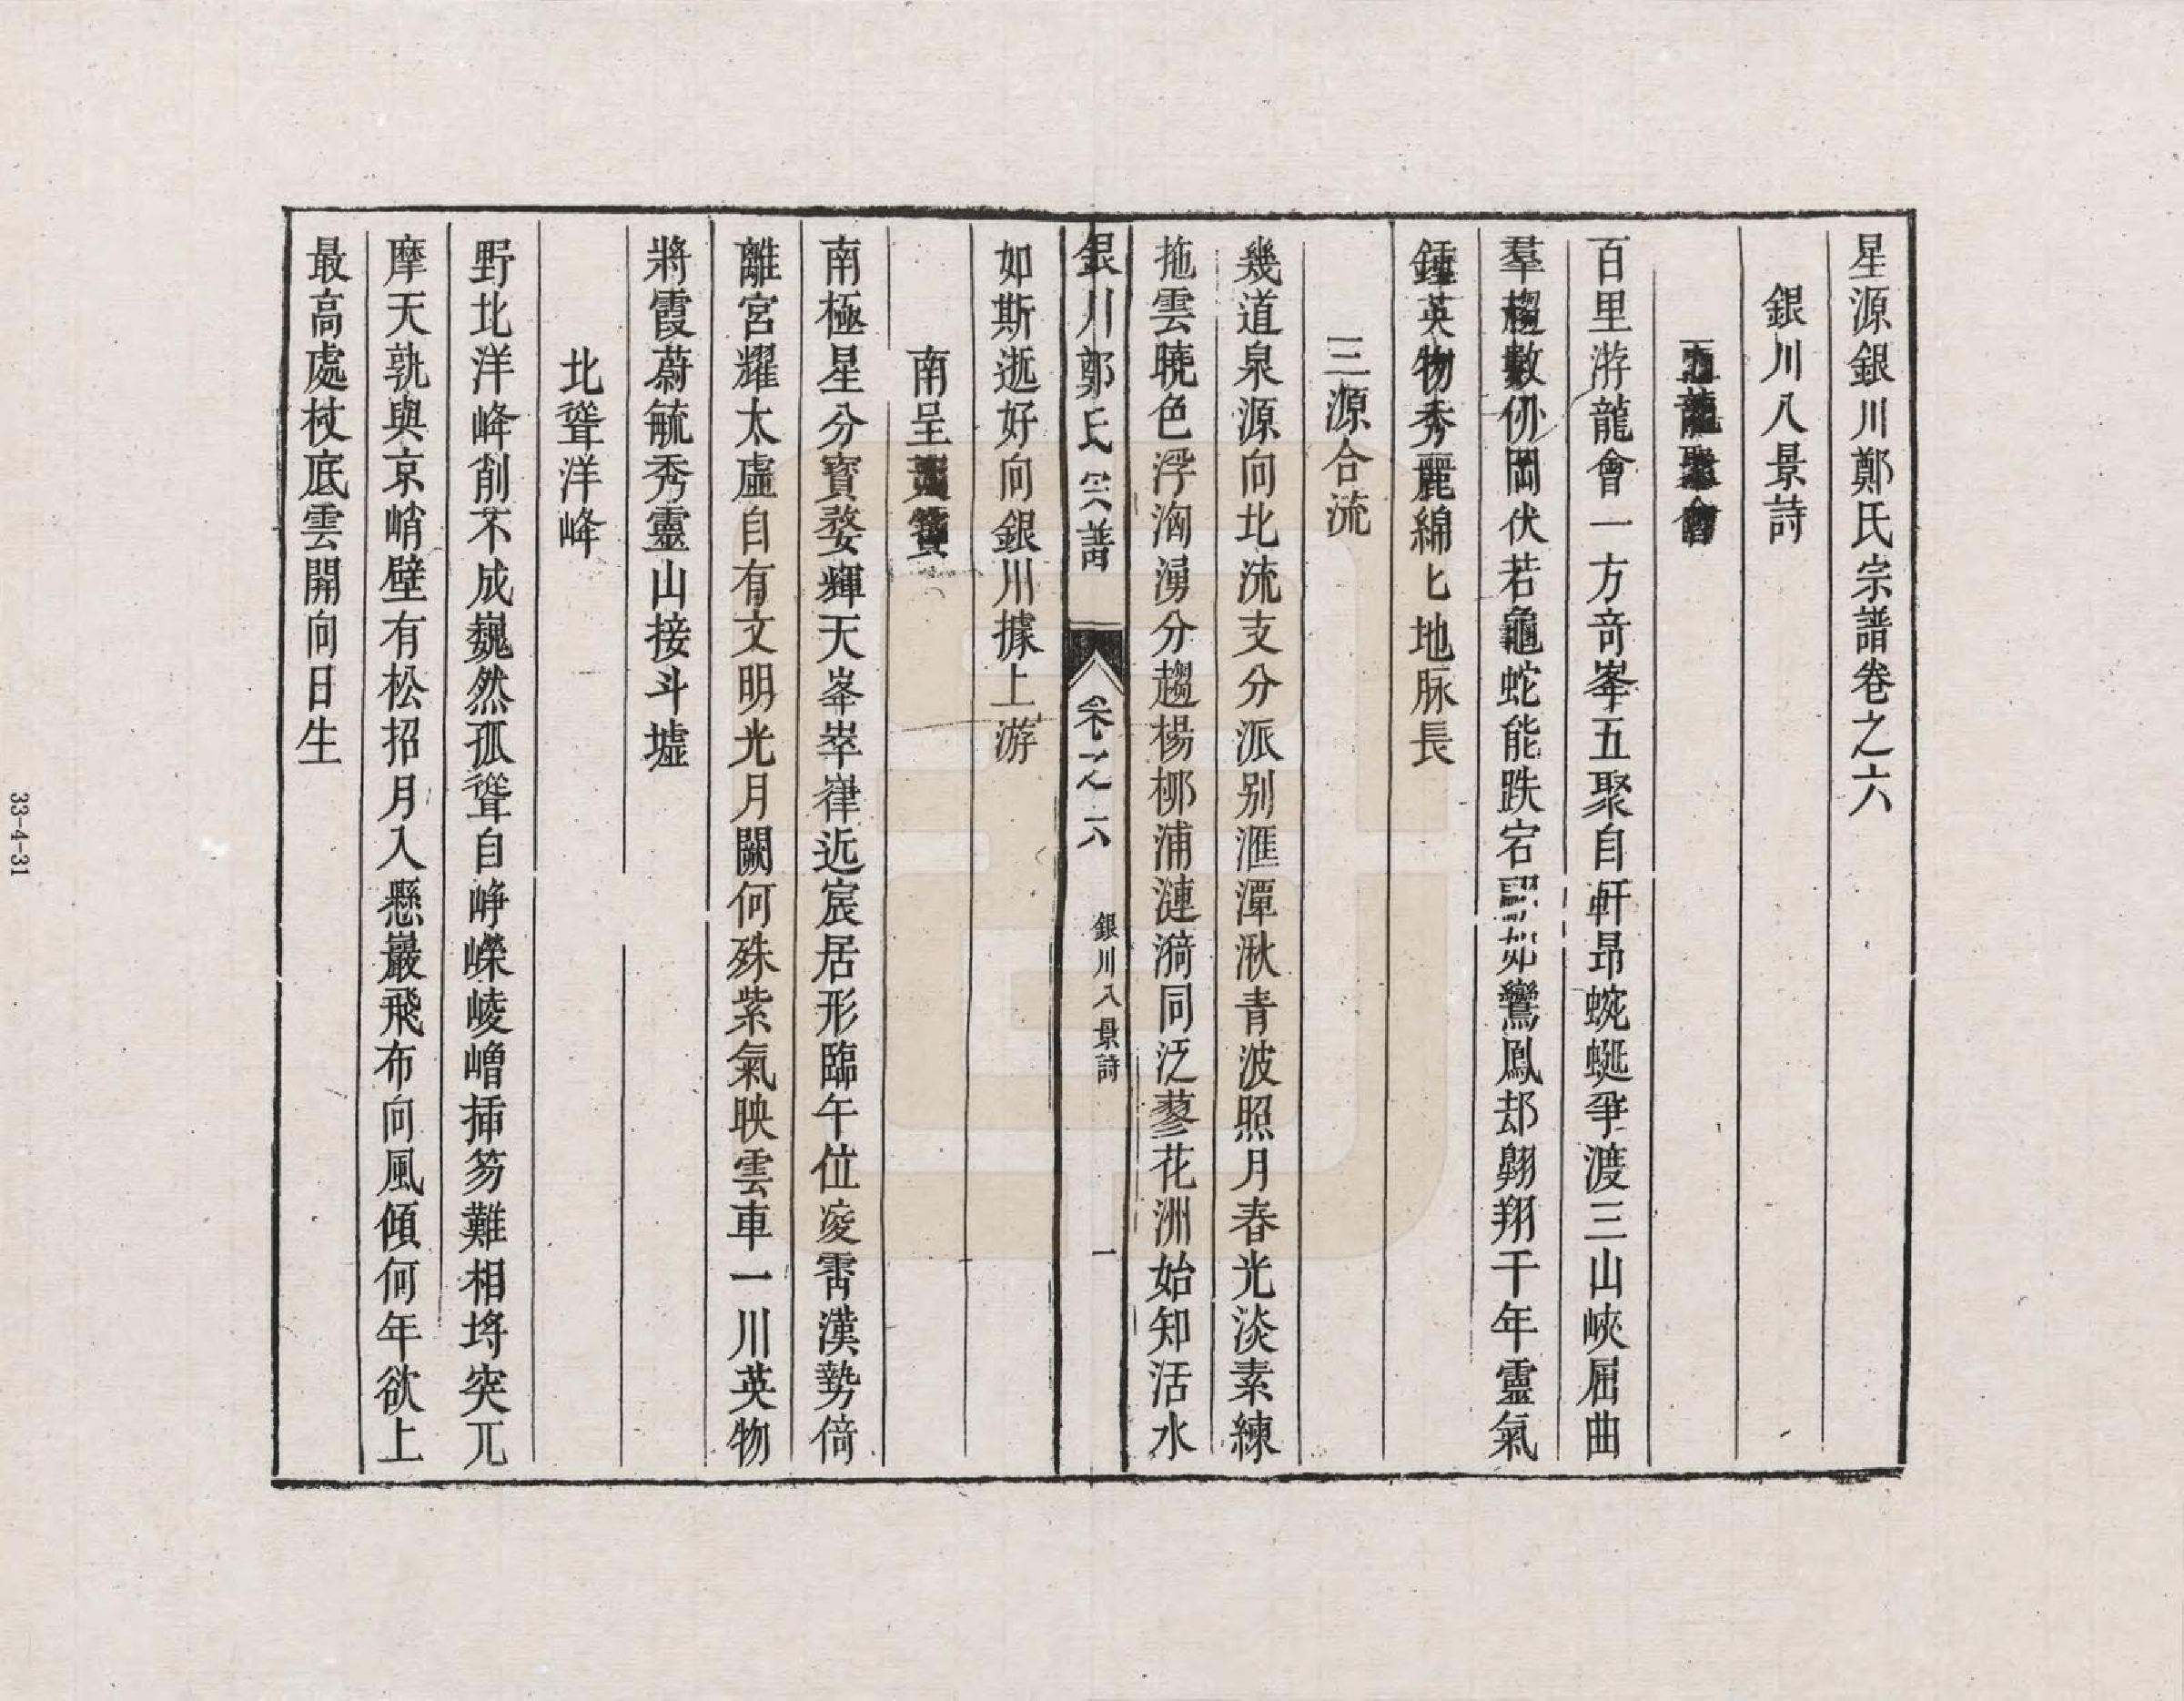 星源銀川鄭氏宗譜卷之六
銀川八景詩
五龍聚會
百里游龍會一方奇峯五聚自軒昂蜿蜒爭渡三山峽屈曲
羣趨數仞岡伏若龜蛇能跌宕如鸞鳳却翱翔千年靈氣
鍾英物秀麗綿匕地脉長
三源合流
幾道泉源向北流支分派别滙潭湫青波照月春光淡素練
拖雲曉色浮洶湧分趨楊栁浦漣漪同泛蓼花洲始知活水
銀川鄭氏宗譜 卷之六 銀川八景詩 一
如斯逝好向銀川據上游
南呈寶
南極星分寶婺輝天峯崒嵂近宸居形臨午位凌霄漢勢倚
離宮耀太虛自有文明光月闕何殊紫氣映雲車一川英物
將霞蔚毓秀靈山接斗墟
北聳洋峰
野北洋峰削不成巍然孤聳自崢嶸崚嶒揷笏難相埒突兀
摩天孰與京峭壁有松招月入懸巖飛布向風傾何年欲上
最高處杖底雲開向日生
33-4-31